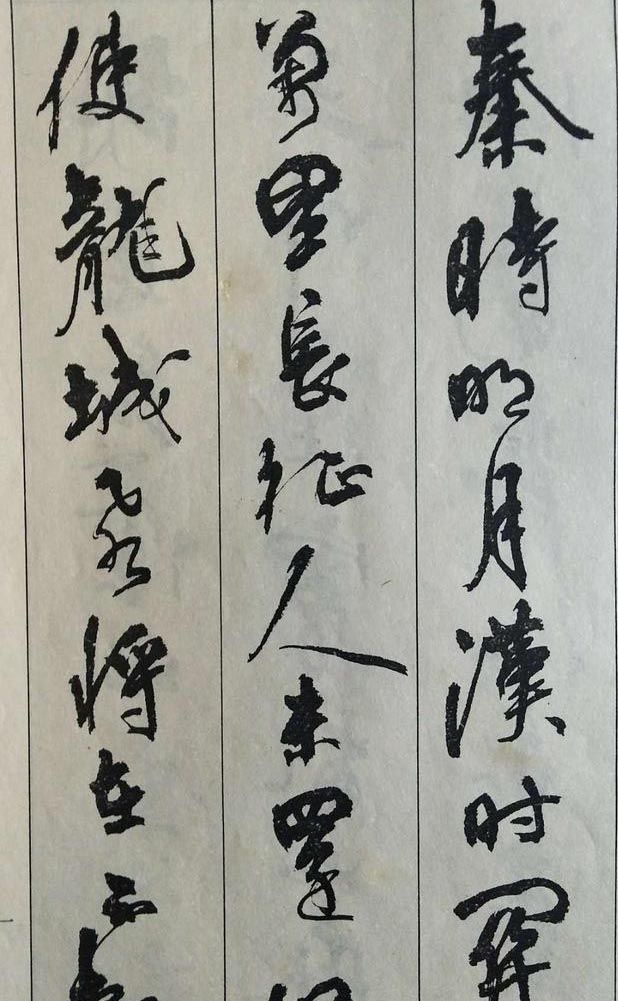 秦時明月漢时關
萬里長征人未還
使龍城飛將在不